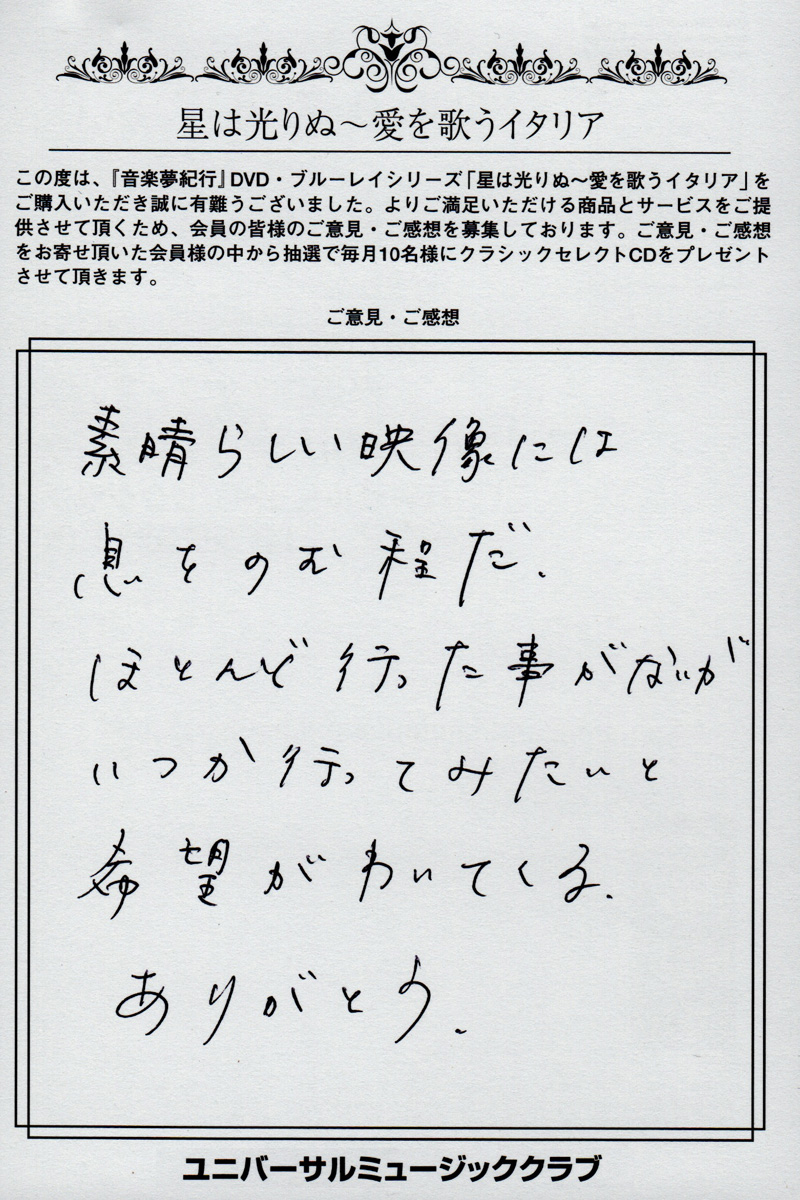 星は光りぬ～愛を歌うイタリア
この度は、『音楽夢紀行』DVD・ブルーレイシリーズ「星は光りぬ～愛を歌うイタリア」を
ご購入いただき誠に有難うございました。よりご満足いただける商品とサービスをご提
供させて頂くため、会員の皆様のご意見・ご感想を募集しております。ご意見・ご感想
をお寄せ頂いた会員様の中から抽選で毎月10名様にクラシックセレクトCDをプレゼント
させて頂きます。
ご意見・ご感想
素晴らしい映像には
息をのむ程だ.
ほとんど行った事がないが
いつか行ってみたいと
希望がわいてくる.
ありがとう.
ユニバーサルミュージッククラブ